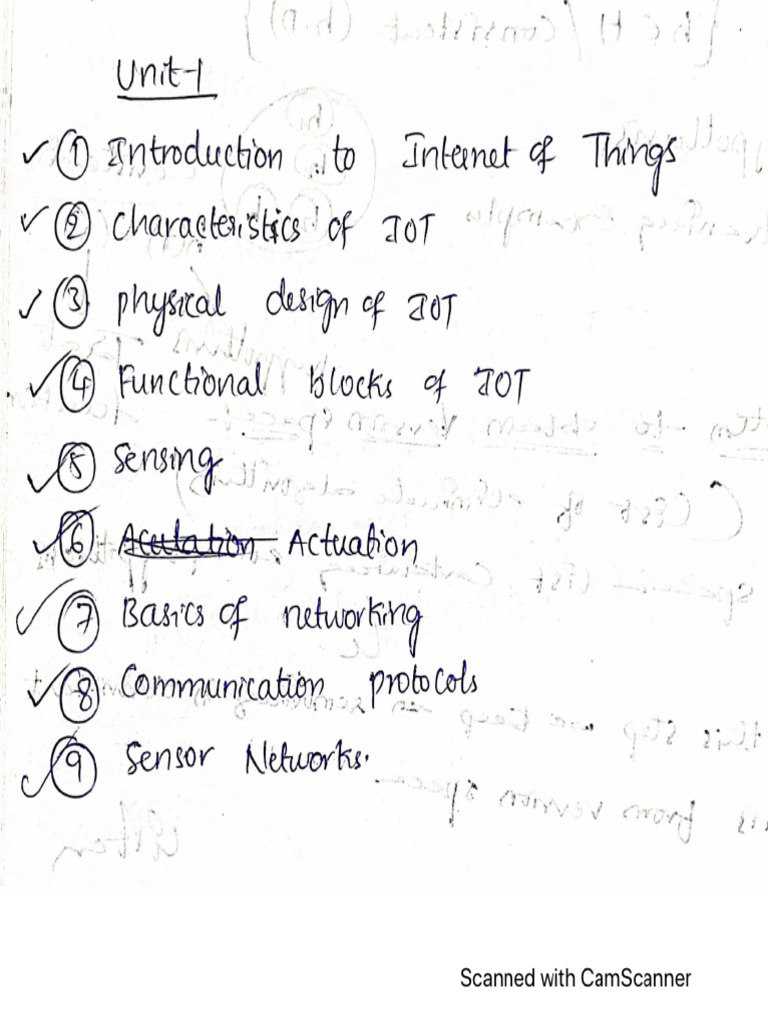 Unit-1
✓ ① Introduction to Internet of Things
✓ ② Characteristics of IOT
✓ ③ physical design of IOT
✓ ④ Functional blocks of IOT
✓ ⑤ Sensing
✓ ⑥ Acutation Actuation
✓ ⑦ Basics of networking
✓ ⑧ Communication protocols
✓ ⑨ Sensor Networks.
Scanned with CamScanner